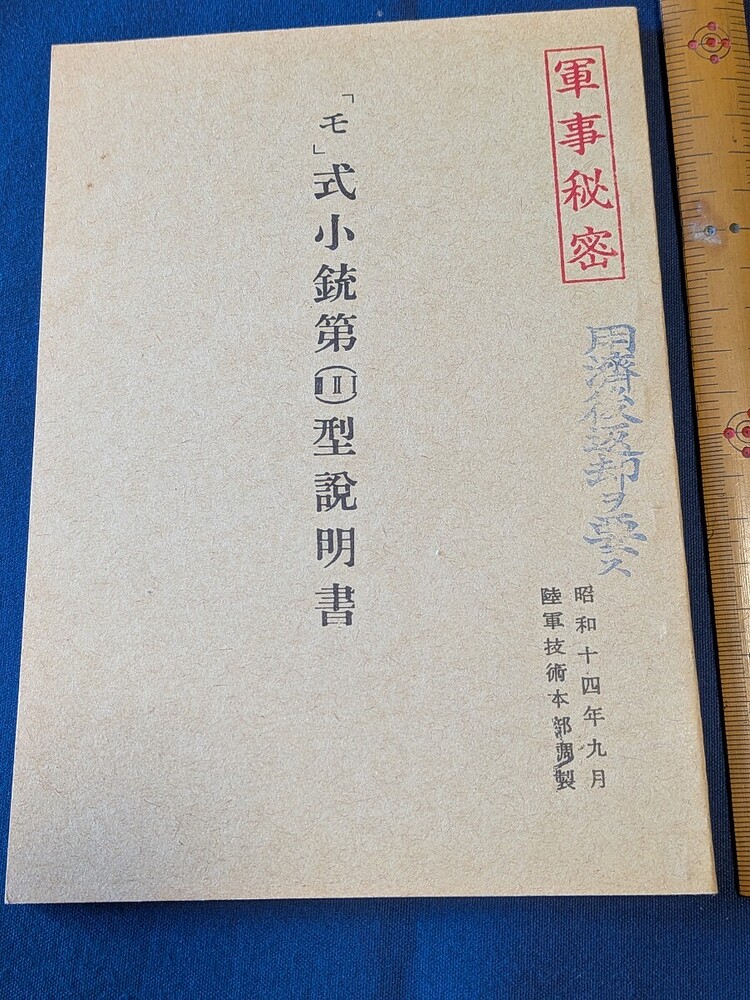 軍事秘密
用濟後返却ヲ要ス
昭和十四年九月
陸軍技術本部調製
「モ」式小銃第Ⅲ型說明書